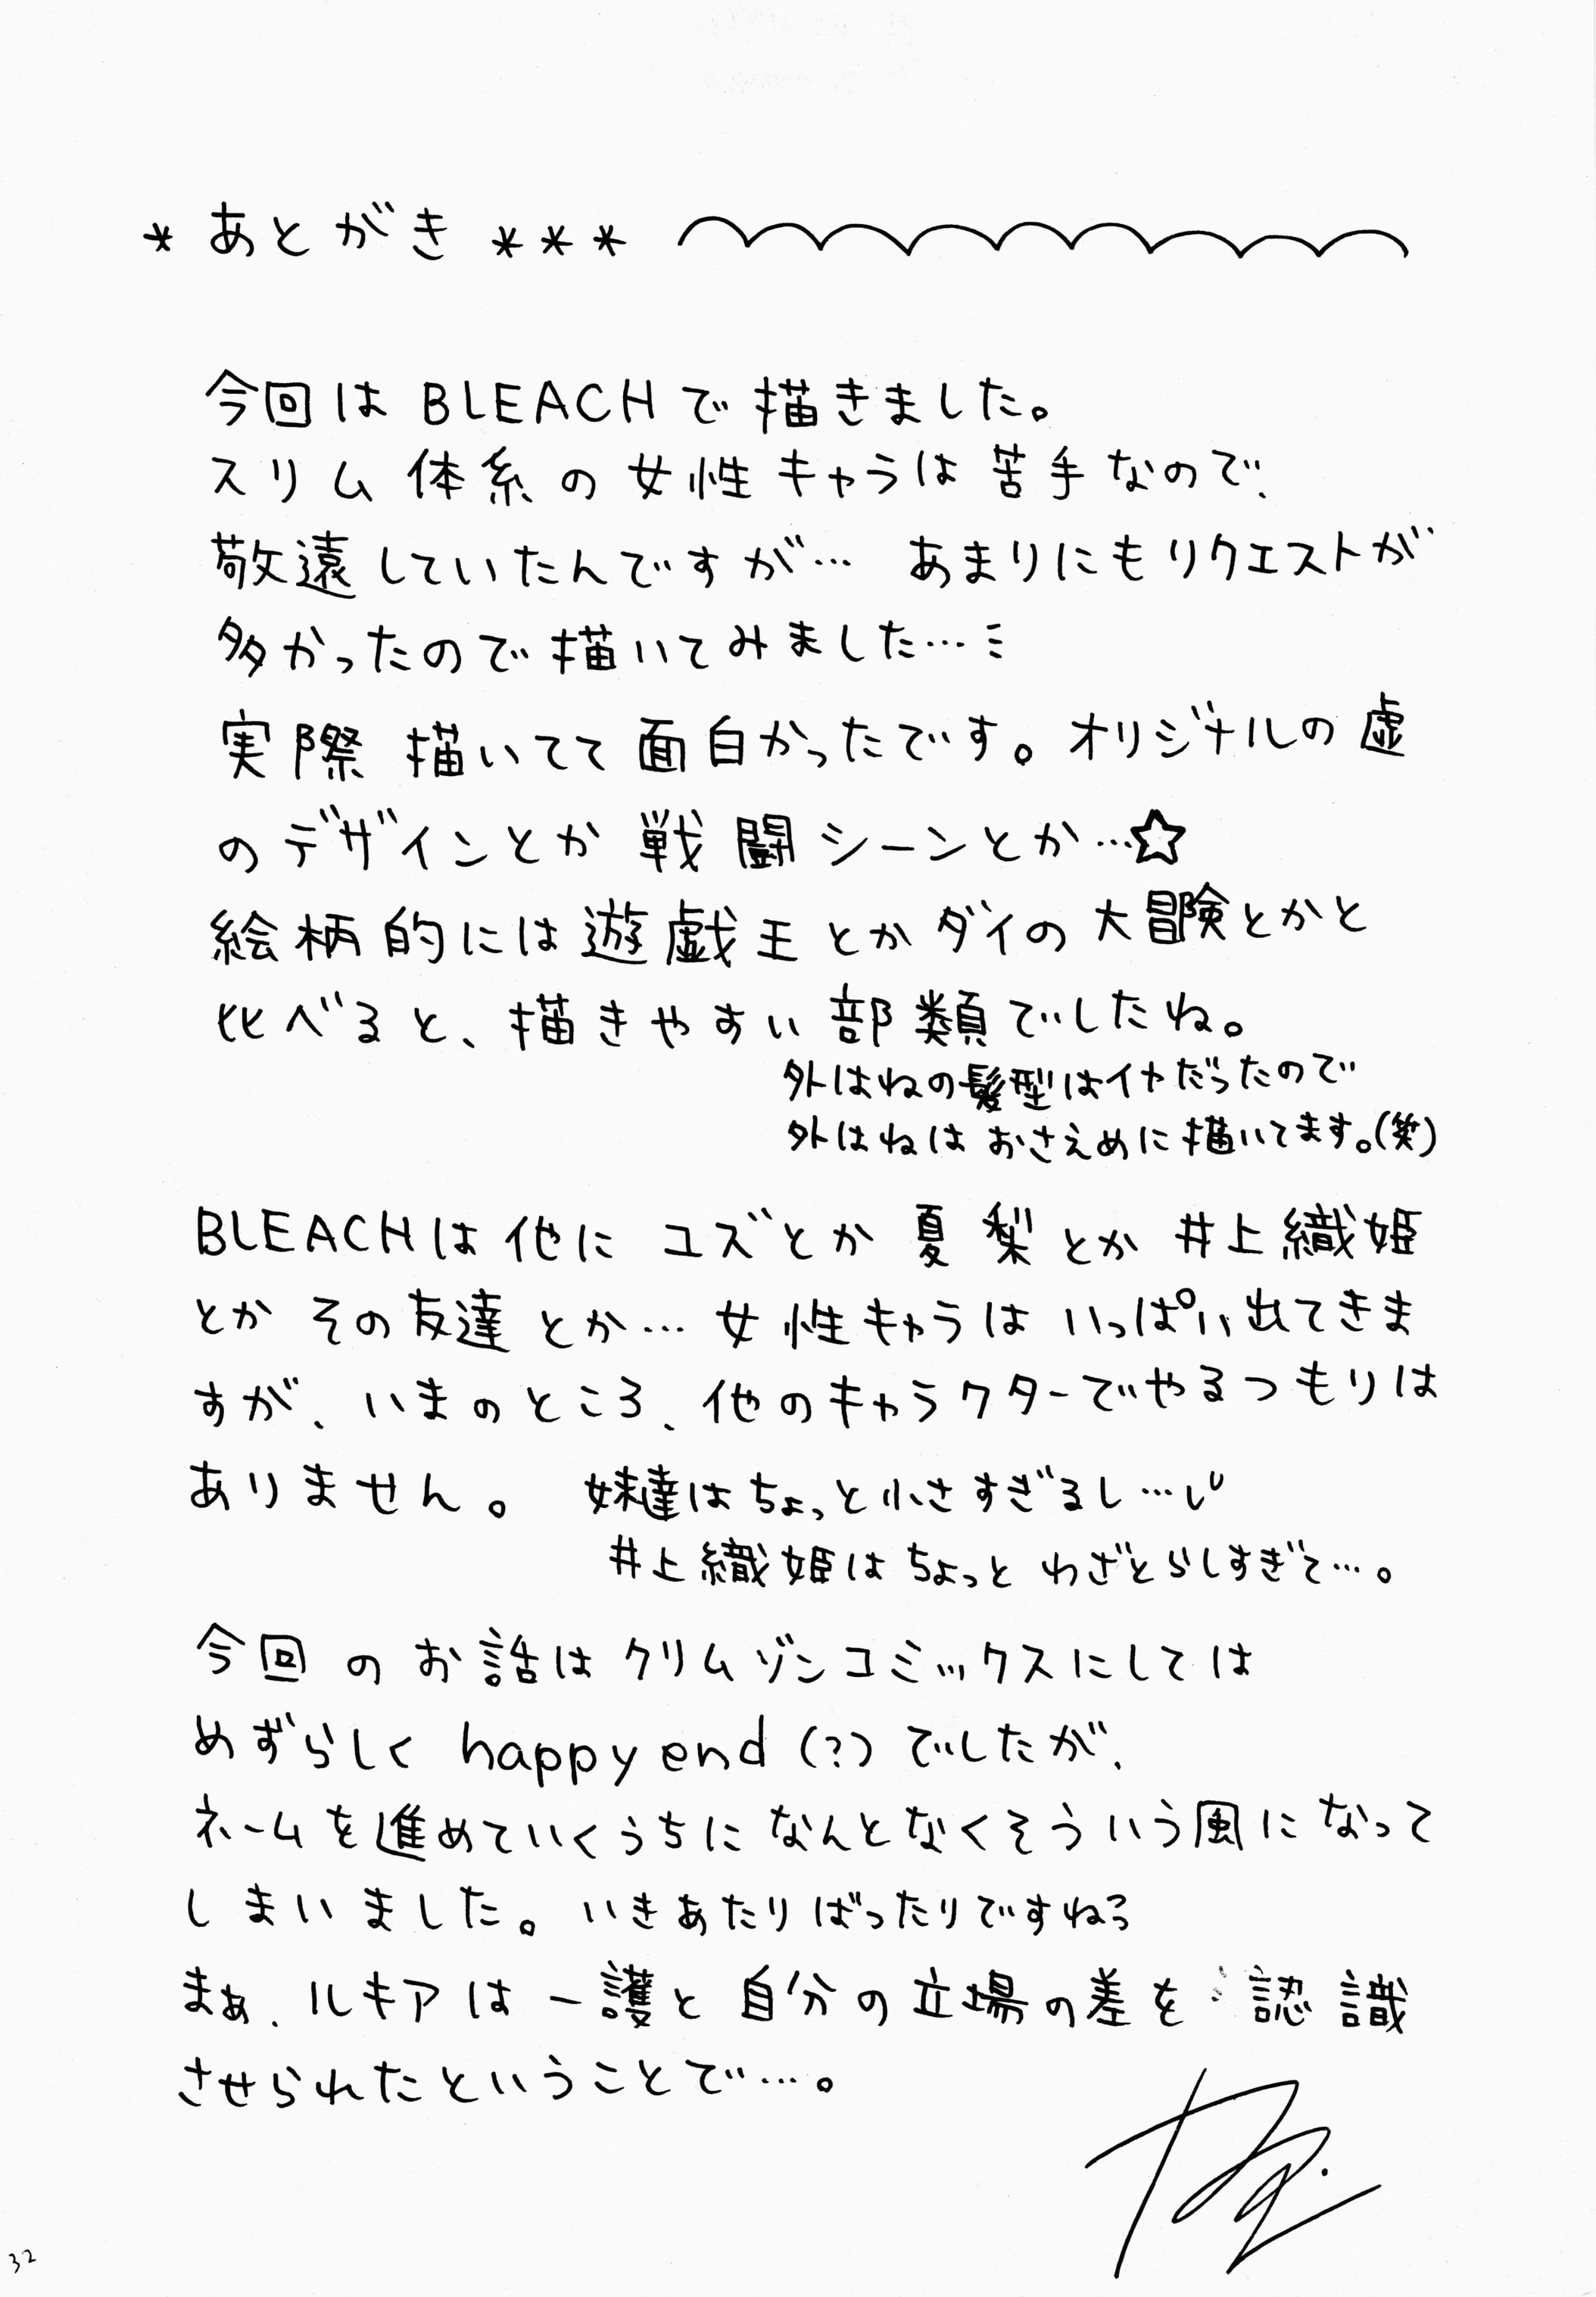 *あとがき***
今回はBLEACHで描きました。
スリム体系の女性キャラは苦手なので、
敬遠していたんですが… あまりにもリクエストが
多かったので描いてみました…
実際描いてて面白かったです。オリジナルの虚
のデザインとか戦闘シーンとか…☆
絵柄的には遊戯王とかダイの大冒険とかと
比べると、描きやすい部類でしたね。
外はねの髪型はイヤだったので
外はねはおさえめに描いてます。(笑)
BLEACHは他にユズとか夏梨とか井上織姫
とかその友達とか…女性キャラはいっぱい出てきま
すが、いまのところ、他のキャラクターでやるつもりは
ありません。 妹達はちょっと小さすぎるし…
井上織姫はちょっとわざとらしすぎて…。
今回のお話はクリムゾンコミックスにしては
めずらしくhappy end(?)でしたが、
ネームを進めていくうちになんとなくそういう風になって
しまいました。いきあたりばったりですね
まぁ、ルキアは一護と自分の立場の差を認識
させられたということで…。
32